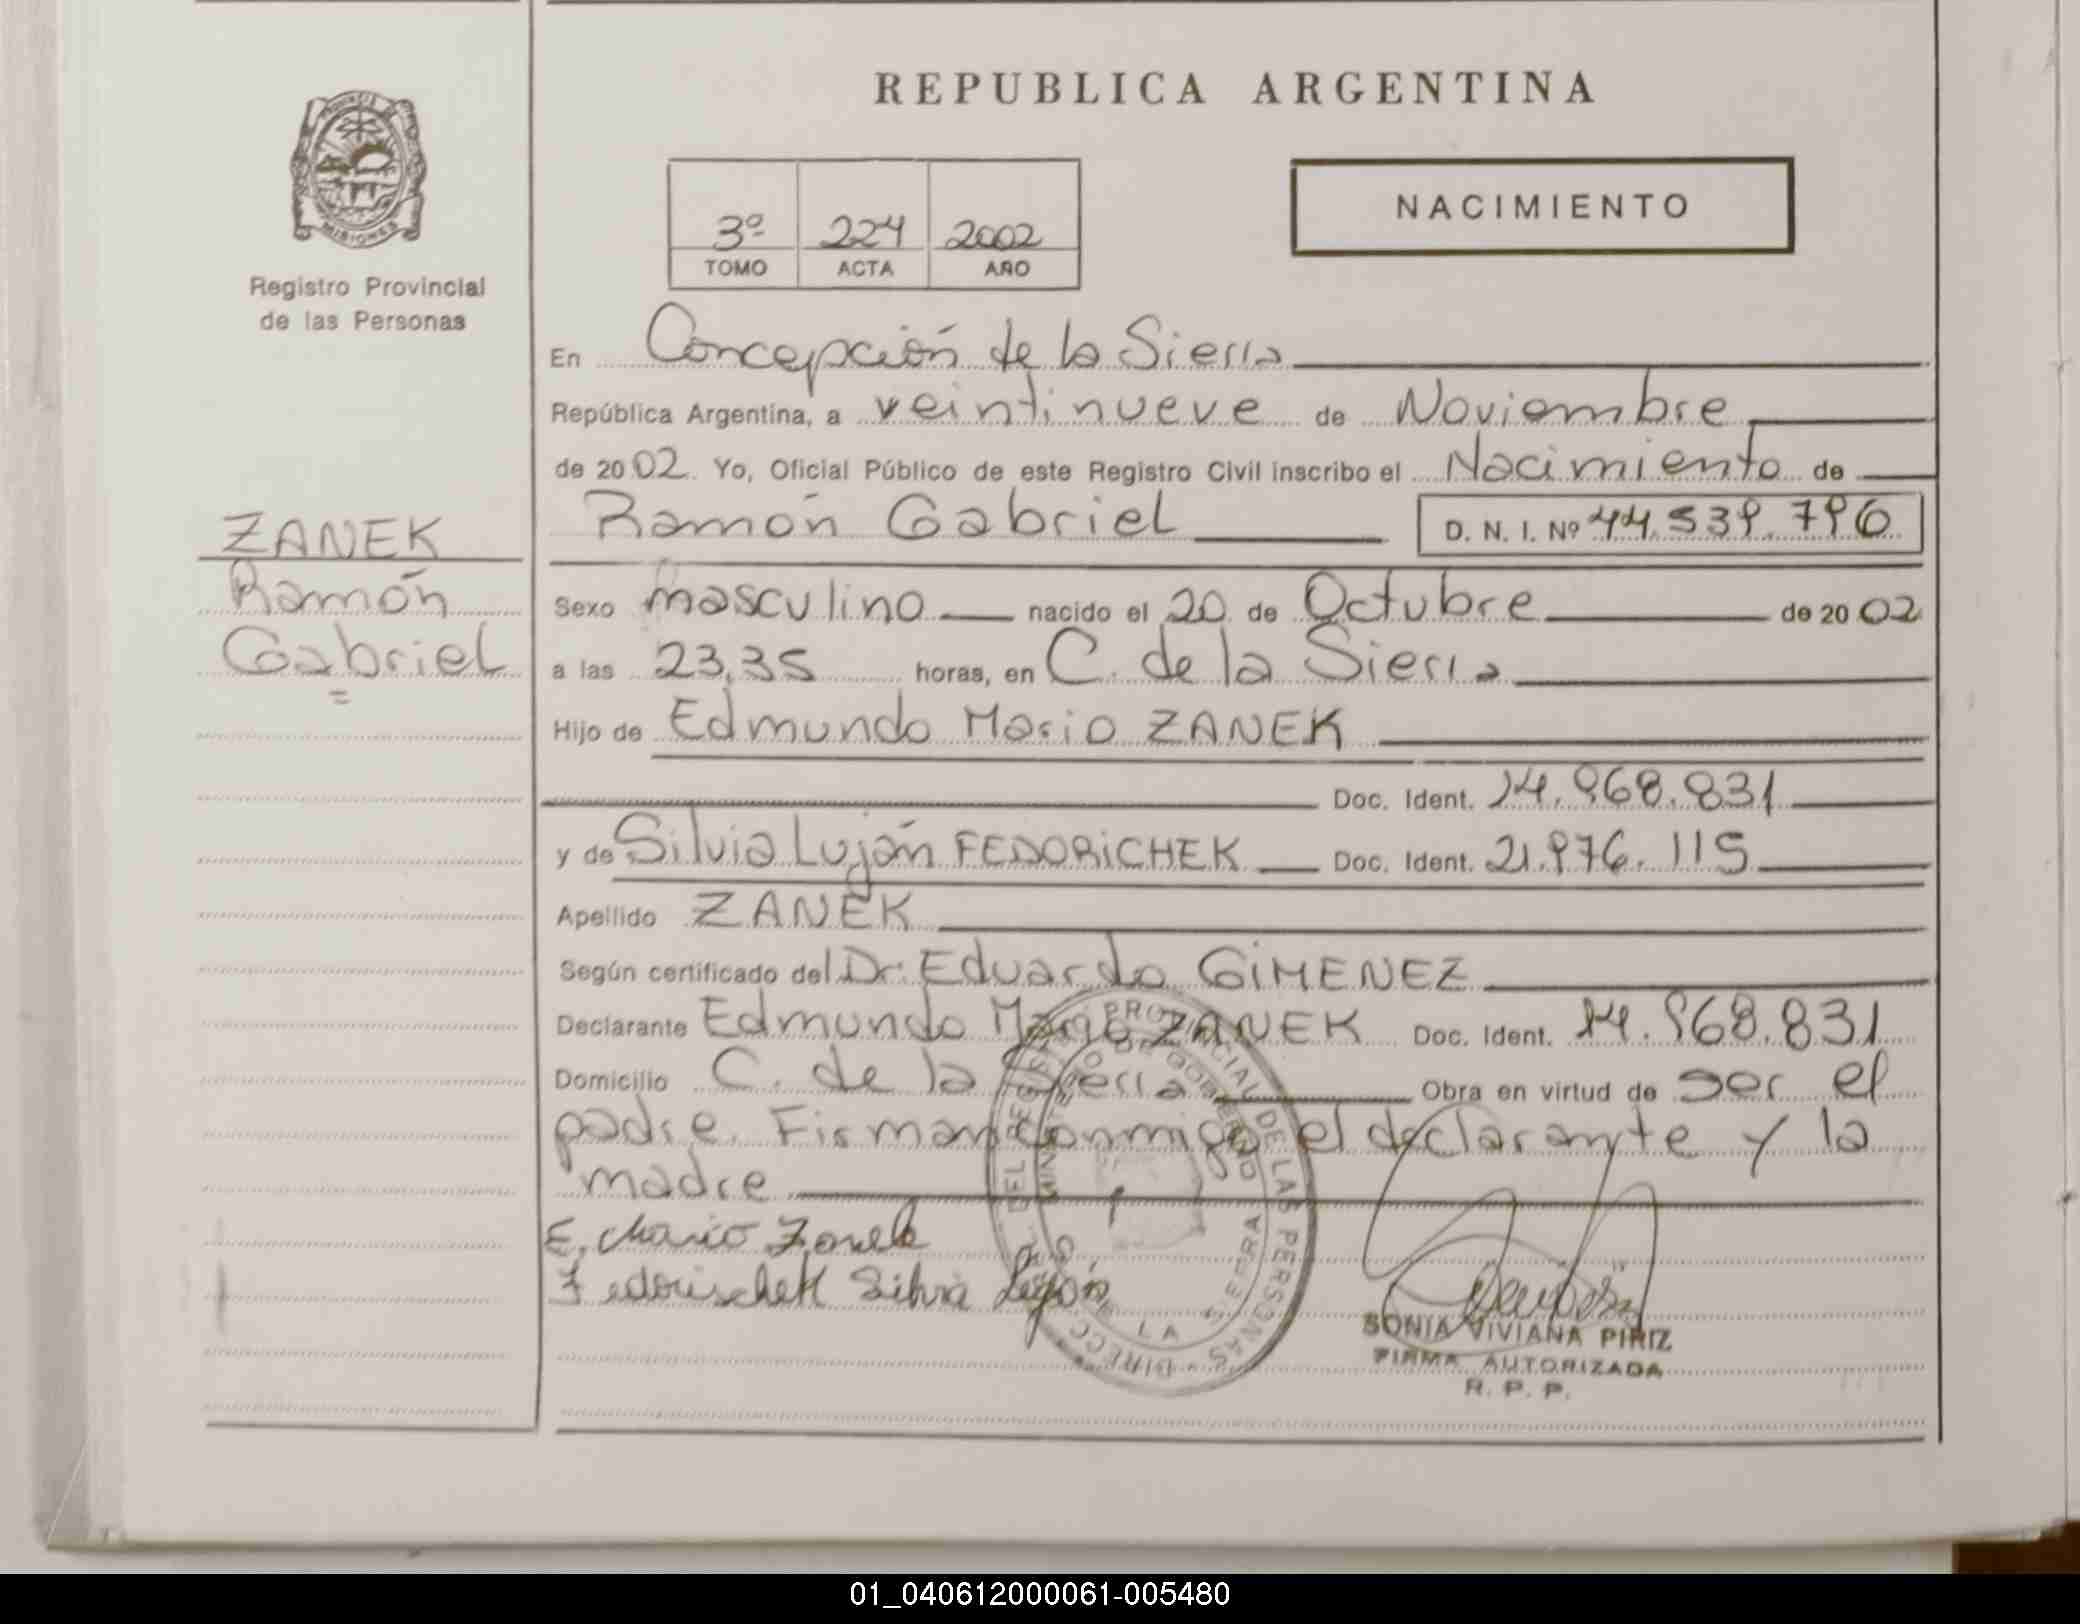 REPUBLICA ARGENTINA
MISIONES
Registro Provincial
de las Personas
3º 224 2002
TOMO ACTA AÑO
NACIMIENTO
En Concepción de la Sierra
República Argentina, a veintinueve de Noviembre
de 2002. Yo, Oficial Público de este Registro Civil inscribo el Nacimiento de
Ramón Gabriel D. N. I. Nº 44.539.796
ZANEK
Ramón
Gabriel
Sexo masculino nacido el 20 de Octubre de 2002
a las 23,35 horas, en C. de la Sierra
Hijo de Edmundo Mario ZANEK
Doc. Ident. 14.968.831
y de Silvia Luján FEDORICHEK Doc. Ident. 21.976.115
Apellido ZANEK
Según certificado del Dr. Eduardo GIMENEZ
Declarante Edmundo Mario ZANEK Doc. Ident. 14.968.831
Domicilio C. de la Sierra Obra en virtud de ser el
padre. Firman conmigo el declarante y la
madre
E. Mario Zanek
Fedorischek Silvia Luján
SONIA VIVIANA PIRIZ
FIRMA AUTORIZADA
R. P. P.
01_040612000061-005480